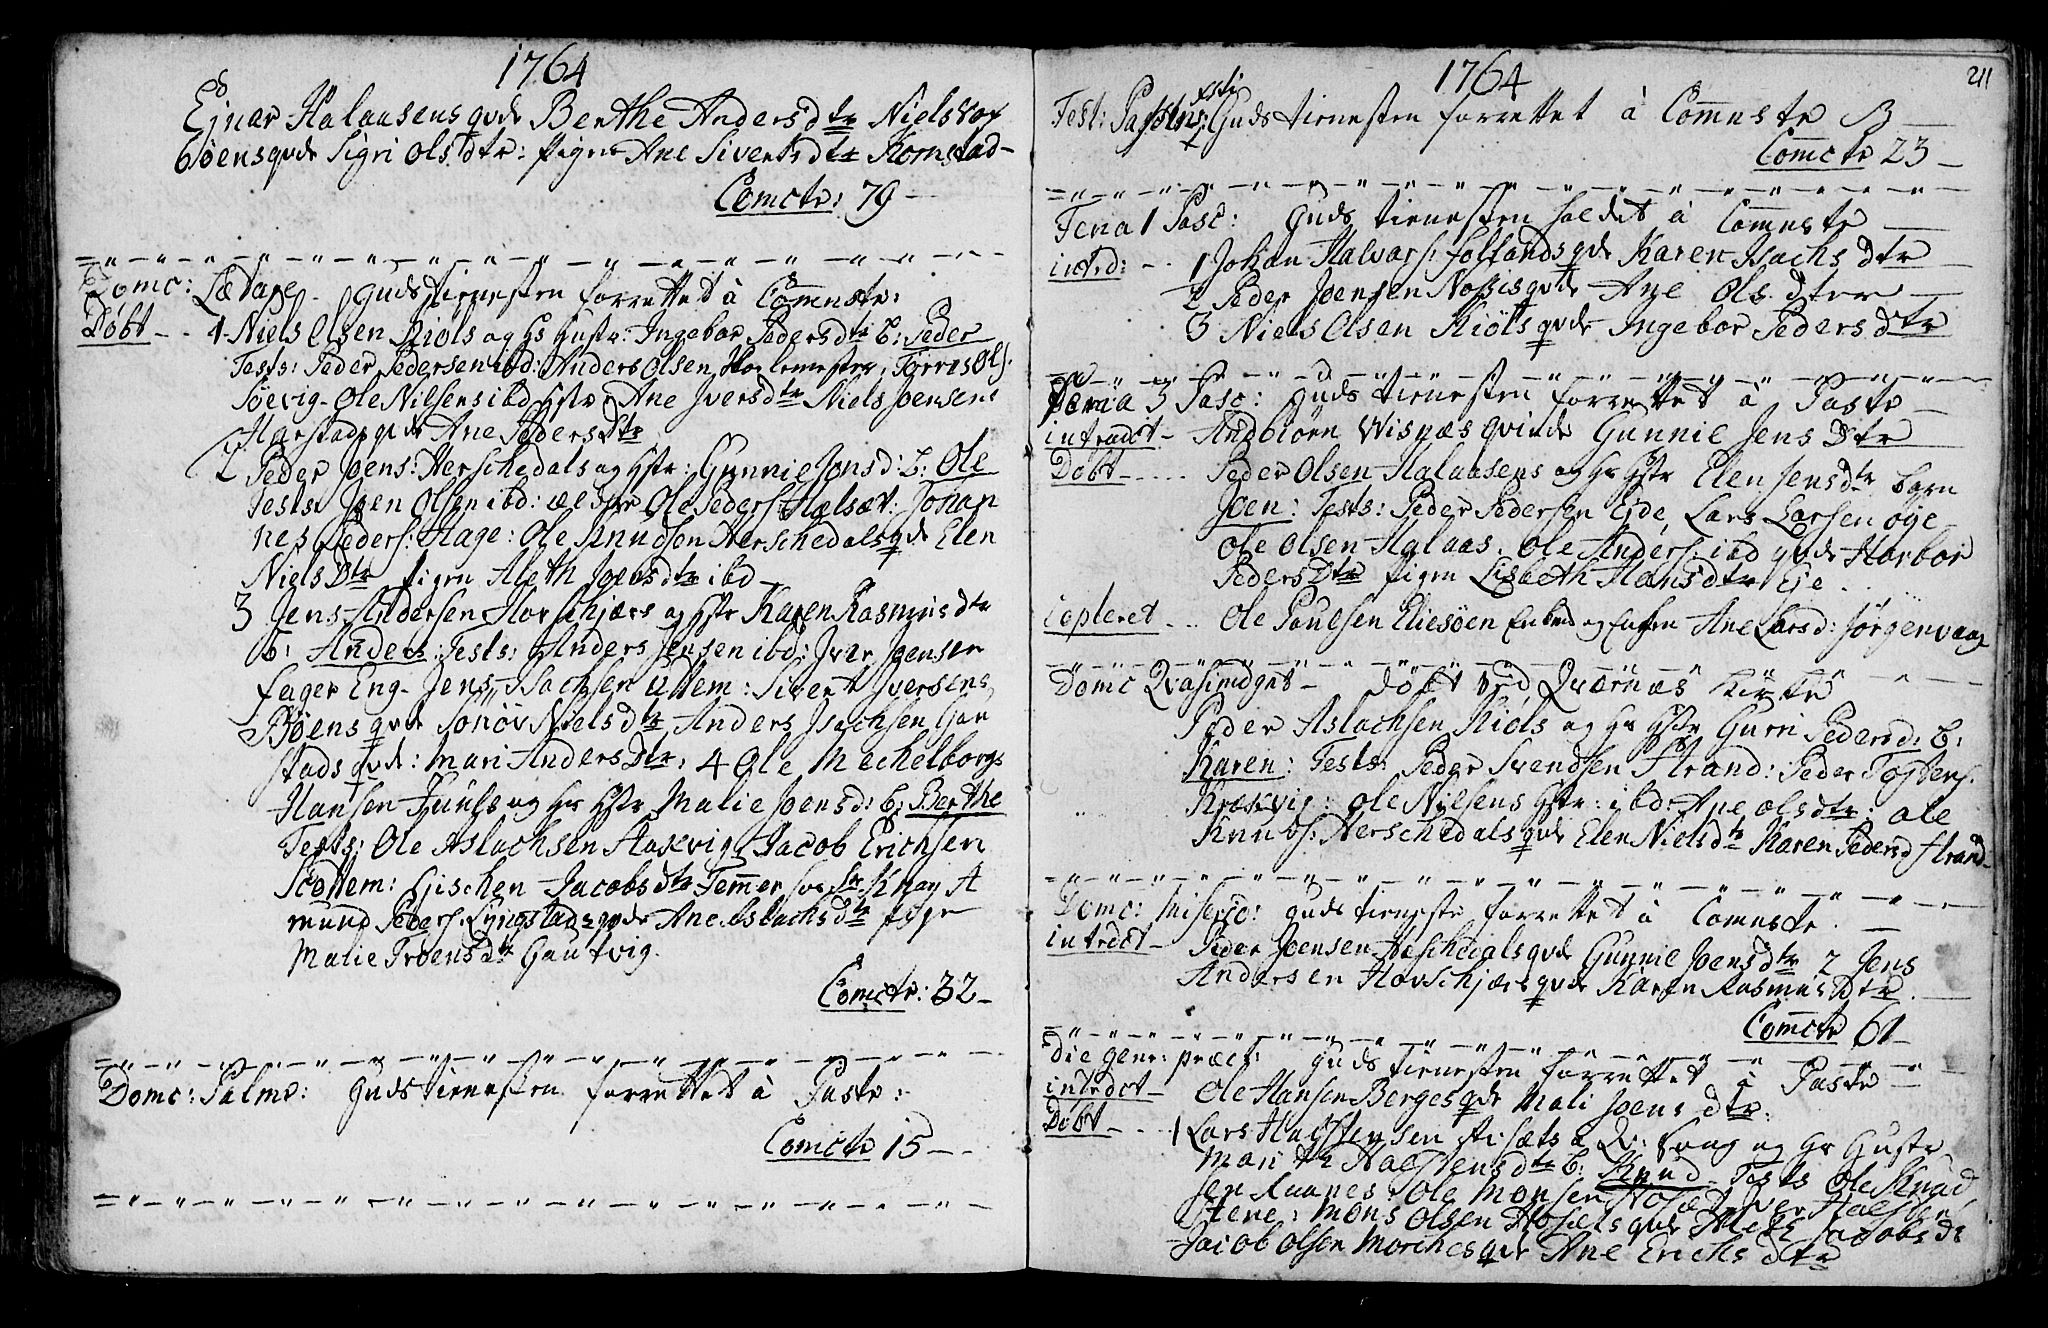 1764
Ejnar Halaasens qvde Berthe Anders dtr Niels
Böens qvde Sigri Ols dtr: pigen Ane Siverts dtr Kornstad
Comctr: 79
Domc: Lætare. Guds tienesten forrettet à Comnstr:
Döbt 1 Niels Olsen Kiöls og Hs Hustr: Ingebor Peders dtr b: Peder
Tests: Peder Pedersen ibd: Anders Olsen Skolemester, Torris Ols:
Söevig Ole Nilsens ibd Hstr: Ane Ivers dtr Niels Joensens
Harstads qvde Ane Peders dtr
2 Peder Joens: Herschedals og Hstr: Gunnie Jons d: b: Ole
Tests Joen Olsen ibd: ældre Ole Peders: Hælsæt: Johan
nes Peders: Hage: Ole Knudsen Herschedals qvde Elen
Niels dtr pigen Aleth Joens dtr ibd
3 Jens Andersen Horschjærs og Hstr Karen Rasmus dtr
b: Anders: Tests: Anders Jensen ibd: Iver Joensen
Fager Eng Jens Isachsen Ullem: Sivert Iversens
Böens qvde Sönöv Niels dtr Anders Isachsen Gau
stads qvde: Mari Anders dtr: 4 Ole Mechelborgs
Hansen Juuls og Hs Hstr Malie Joens d: b: Berthe
Tests: Ole Aslachsen Haxvig, Jacob Erichsen
Schem: Gischen Jacobs dtr Temmer Knap A
mund Peders: Lyngstads qvde Ane Aslachs dtr pige
Malie Troens dtr Gautvig.
Comctr: 32
Domc: Palmr: Guds tienesten forrettet à Pastr:
Comctr 15
1764
211
Fest: Pasch: Guds tienesten forrettet à Comnstr B
Comctr 23
Feria 1 Pasc: Guds tienesten holdet à Comnstr
introd: 1 Johan Halvars: Follands qvde Karen Isachs dtr
2 Peder Joensen Nossis qvde Ane Ols dtr
3 Niels Olsen Kiöls qvde Ingebor Peders dtr
Feria 3 Pasc: Guds tienesten forrettet à Pastr
introdct Andbiörn Wisnæs qvinde Gunnie Jens dtr
Döbt Peder Olsen Halaasens og Hs Hstr Elen Jens dtr barn
Joen: Tests: Peder Pedersen Eide, Lars Larsen öye
Ole Olsen Halaas. Ole Anders: ibd qvde Harbor
Peders dtr pigen Lisbeth Hans dtr Eje
Copleret Ole Poulsen Eliesöen Enkem og Enken Ane Lars d: Jörgenvaag
Domc Qvasimdgnt Döbt ved Qværnæs Kirke
Peder Aslachsen Kiöls og Hs Hstr Gurri Peders d: b:
Karen: Tests: Peder Svendsen Strand: Peder Tosters:
Kraxvig: Ole Nilsens Hstr: ibd: Ane Ols dtr: Ole
Knuds: Herschedals qvde Elen Niels dtr Karen Peders d Strand
Domc: Miseric: Guds tieneste forrettet à Comnstr.
introdct Peder Joensen Heschedals qvde Gunnie Joens dtr 2 Jens
Andersen Hovschjærs qvde Karen Rasmus dtr.
Comctr 61
Die gener: præct: Guds tienesten forrettet à Pastr
introdct Ole Hansen Berges qvde Mali Joens dtr.
Döbt 1 Lars Halstensen Stisæts a Qv: Vaag og Hs Hustr
Marithe Halstens dtr b: Knud Tests Ole Knud
sen Raanes: Ole Monsen Hosæt Iver Halsten
Stene: Mons Olsen Hosæts qvde Aleth Jacobs d:
Jacob Olsen Morches qvde Ane Erichs dtr